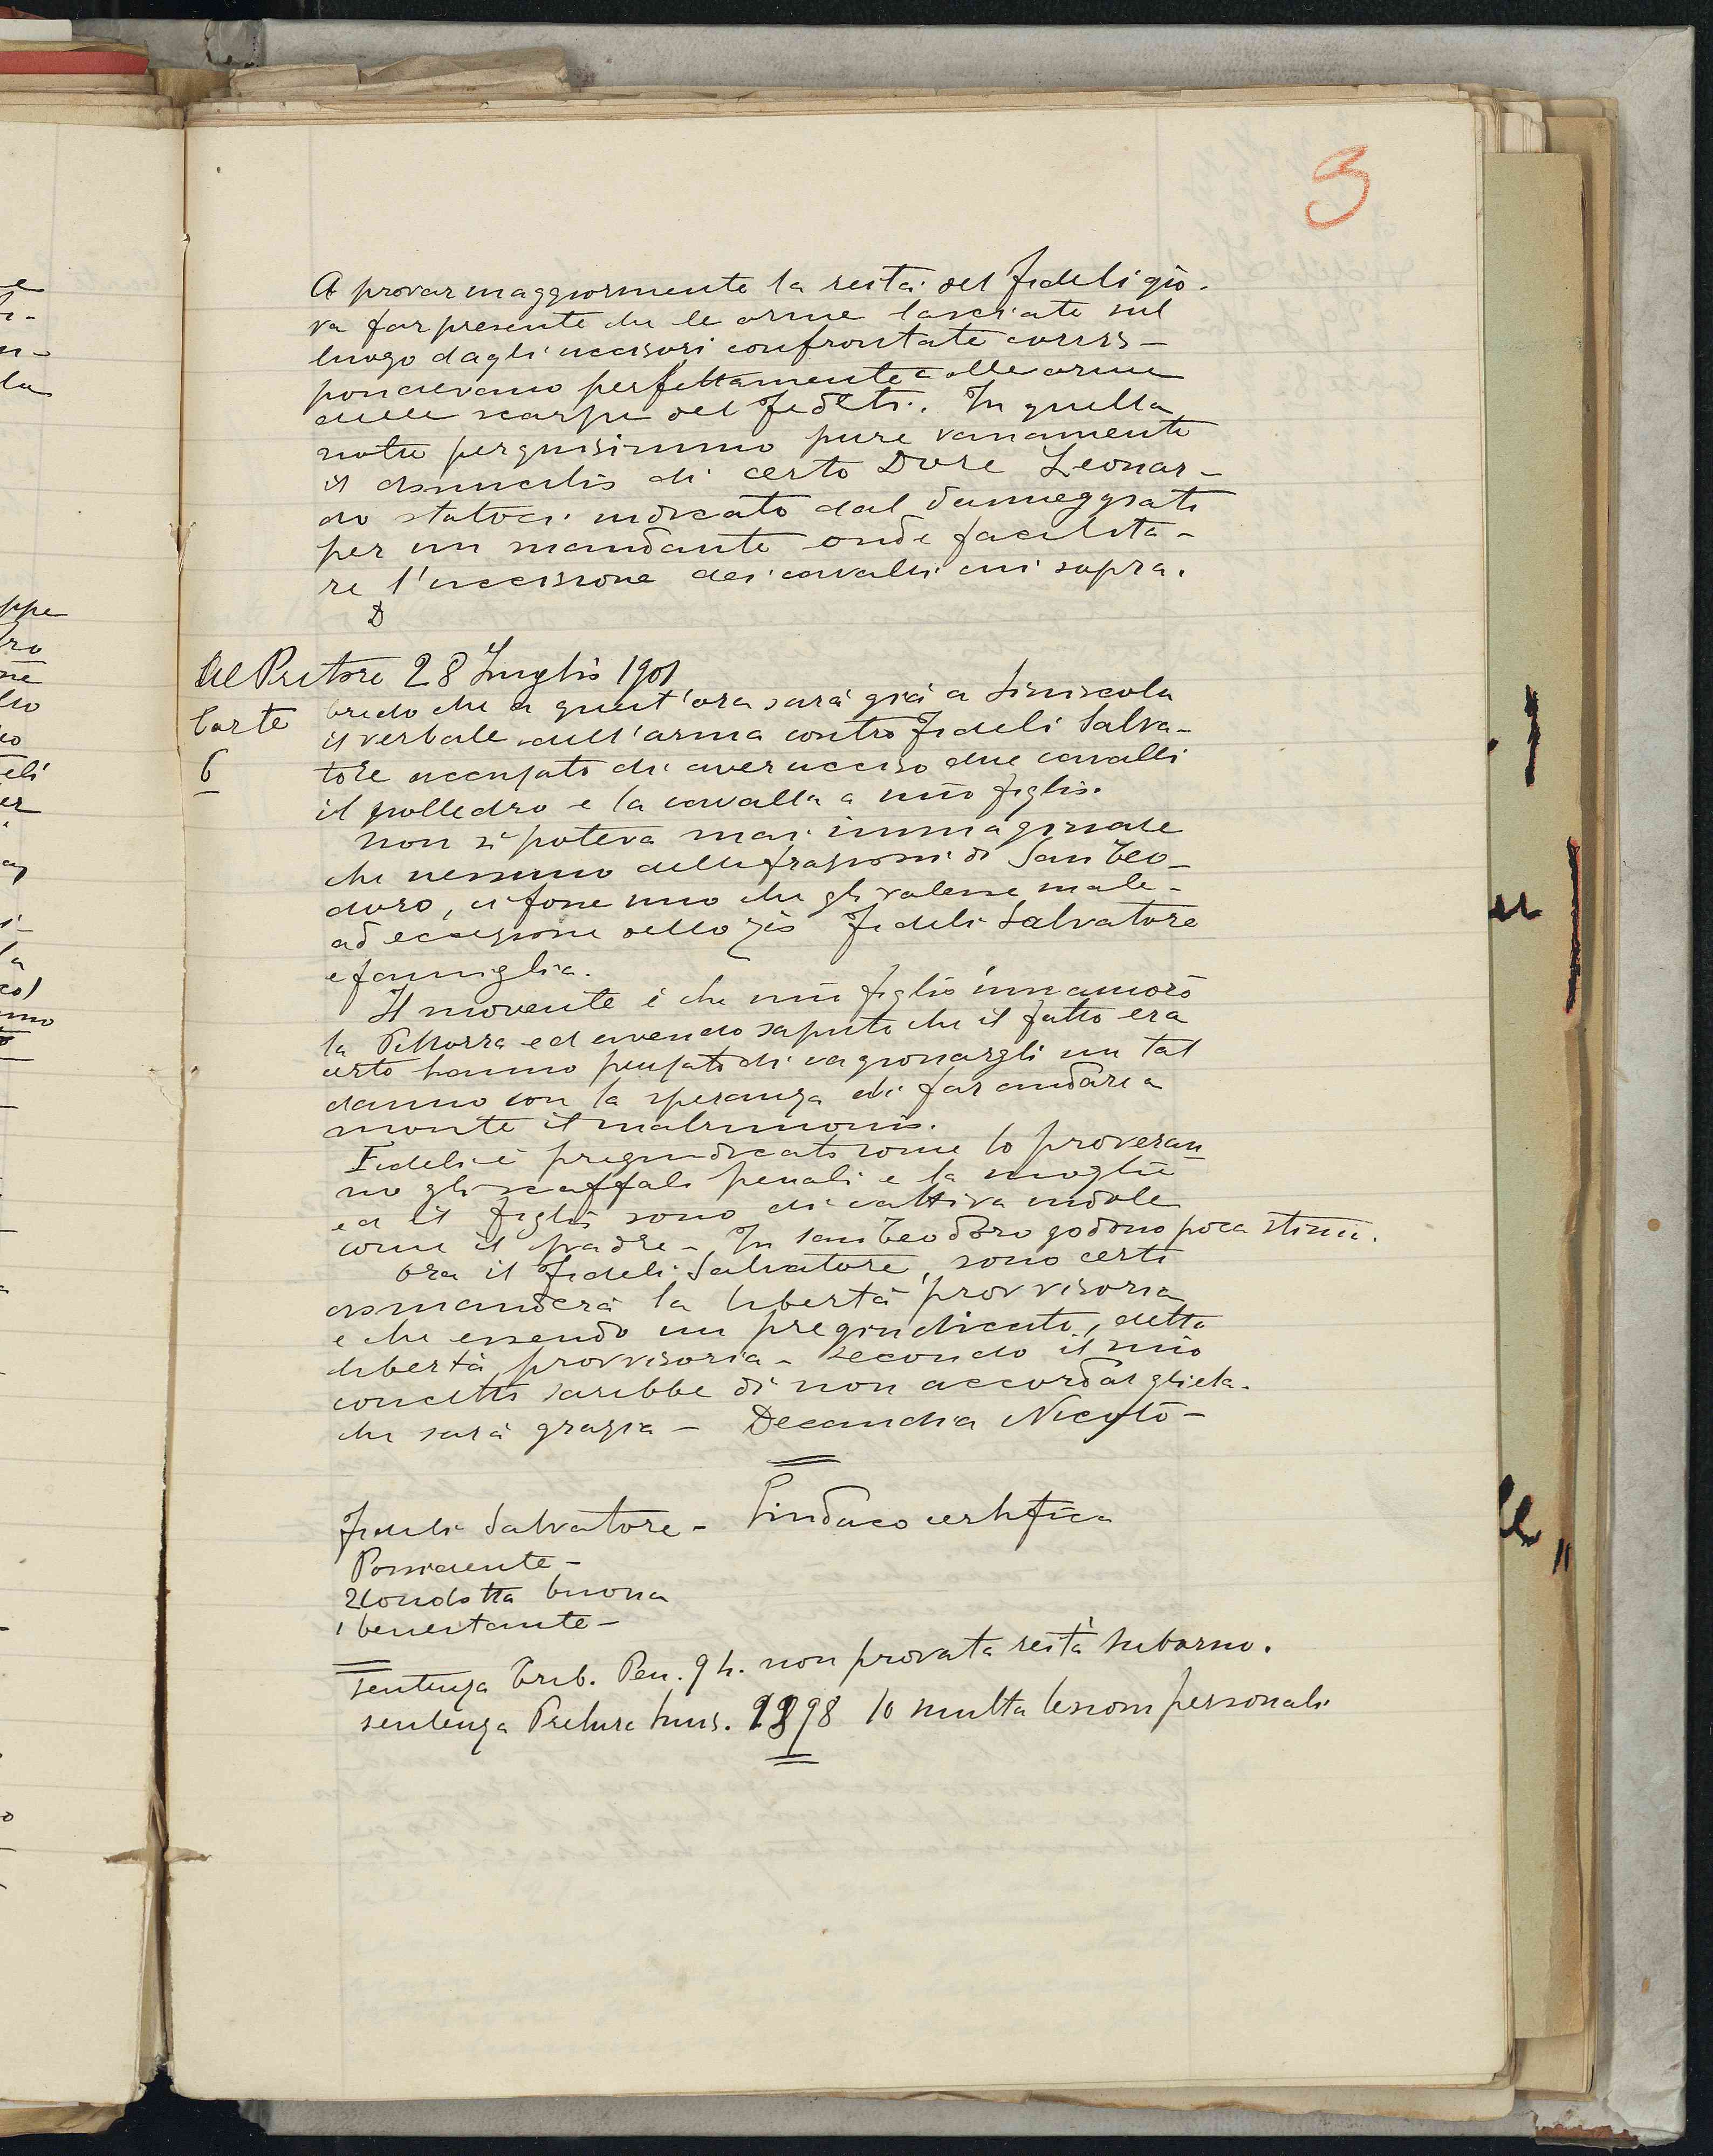 3
A provar maggiormente la reità del Fideli gio-
va far presente che le orme lasciate sul
luogo dagli uccisori confrontate corris-
pondevano perfettamente colle orme
delle scarpe del Fideli. In quella
notte perquisimmo pure vanamente
il domicilio di certo Dore Leonar-
do statoci indicato dal danneggiato
per un mandante onde facilita-
re l'uccisione dei cavalli cui sopra.
D
Al Pretore 28 Luglio 1901
Carte
6
Credo che a quest'ora sarà già a Siniscola
il verbale dell'arma contro Fideli Salva-
tore accusato di aver ucciso due cavalli
il polledro e la cavalla a mio figlio.
Non si poteva mai immaginare
che nessuno delle frazioni di San Teo-
doro, ci fosse uno che gli volesse male-
ad eccezione dello zio Fideli Salvatore
e famiglia.
Il movente è che mio figlio innamorò
la Pittorra ed avendo saputo che il fatto era
certo hanno pensato di cagionargli un tal
danno con la speranza di far andare a
monte il matrimonio.
Fideli è pregiudicato come lo proveran
no gli scaffali penali e la moglie
ed il figlio sono di cattiva indole
come il padre - In San Teodoro godono poca stima.
Ora il Fideli Salvatore, sono certo
domanderà la libertà provvisoria
e che essendo un pregiudicato, detta
libertà provvisoria - secondo il mio
concetto sarebbe di non accordargliela.
che sarà grazia - Decandia Nicolò -
Fideli Salvatore - Sindaco certifica
Possidente -
Condotta buona
benestante -
sentenza Trib. Pen. 94. non provata reità
sentenza Pretura 1898 10 multa lesioni personali